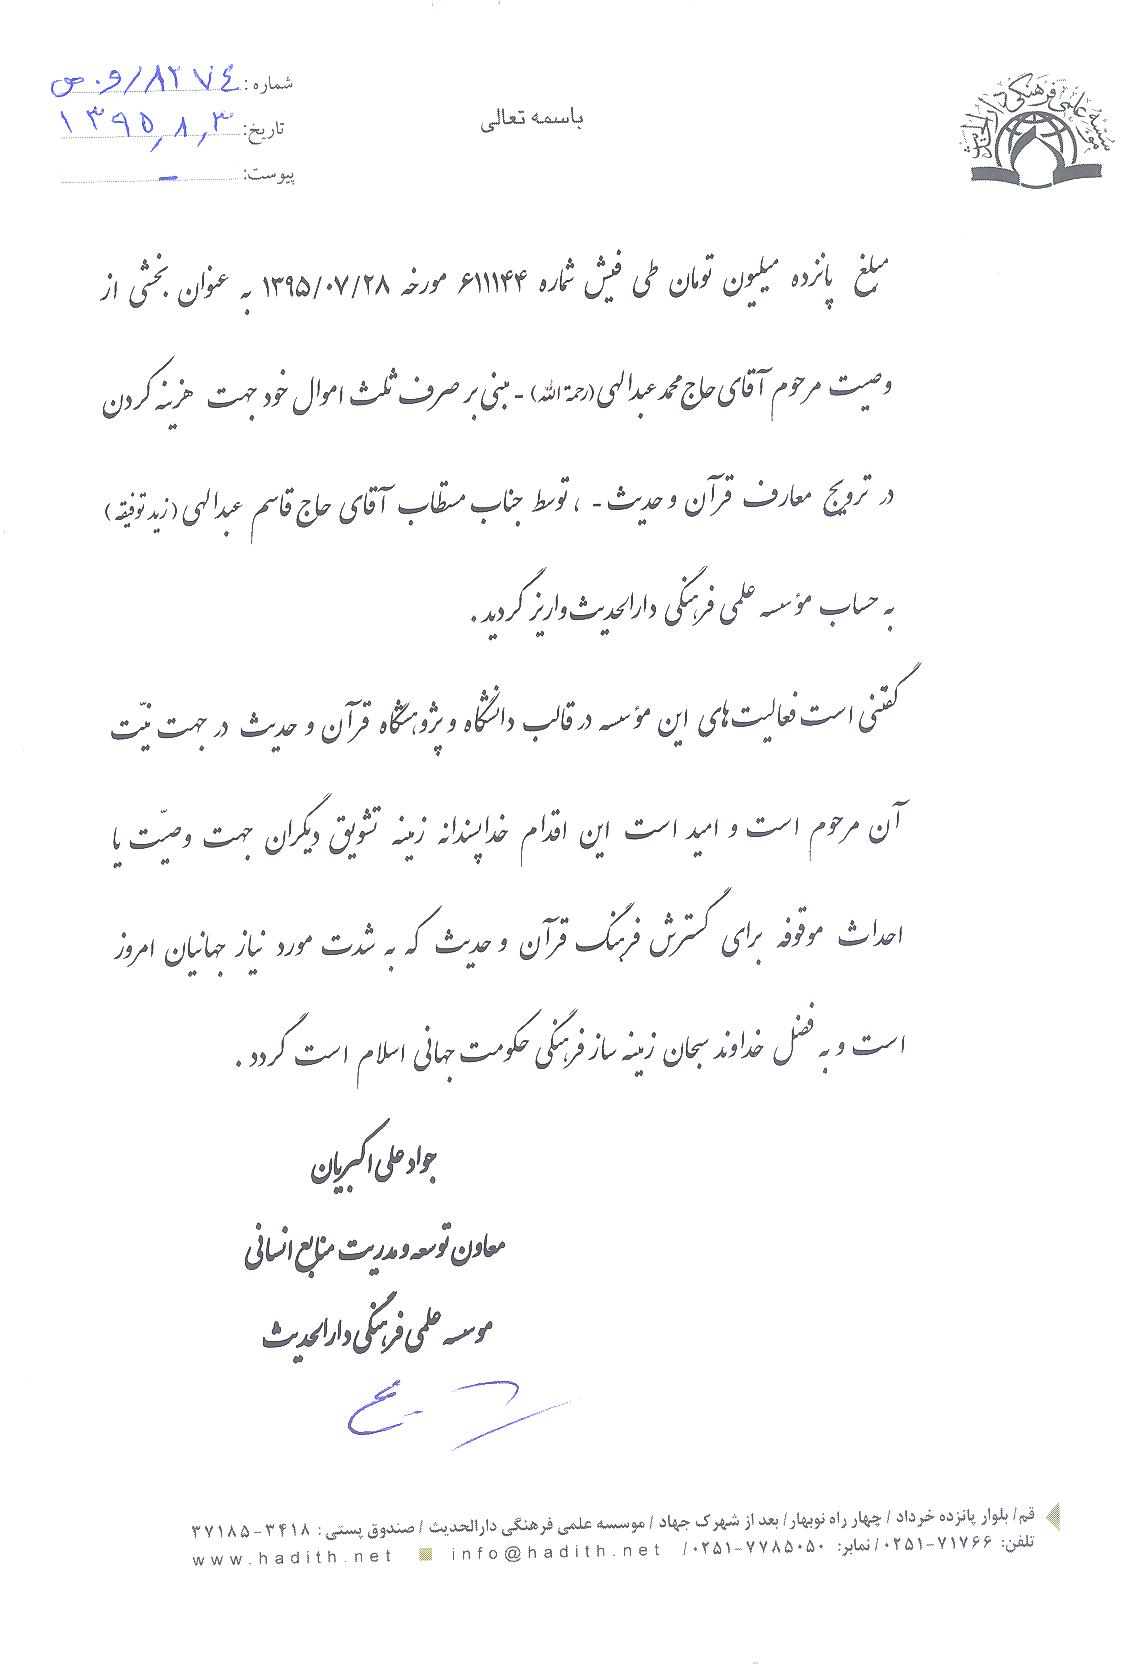 موسسه علمی فرهنگی دارالحدیث
شماره: ۸۲۷۴/و۰ص
تاریخ: ۱۳۹۵,۸,۳
پیوست: -
باسمه تعالی
مبلغ پانزده میلیون تومان طی فیش شماره ۶۱۱۱۴۴ مورخه ۱۳۹۵/۰۷/۲۸ به عنوان بخشی از
وصیت مرحوم آقای حاج محمد عبدالهی (رحمة الله) - مبنی بر صرف ثلث اموال خود جهت هزینه کردن
در ترویج معارف قرآن و حدیث - ، توسط جناب مستطاب آقای حاج قاسم عبدالهی (زید توفیقه)
به حساب مؤسسه علمی فرهنگی دارالحدیث واریز گردید .
گفتنی است فعالیت‌های این مؤسسه در قالب دانشگاه و پژوهشگاه قرآن و حدیث در جهت نیّت
آن مرحوم است و امید است این اقدام خداپسندانه زمینه تشویق دیگران جهت وصیّت یا
احداث موقوفه برای گسترش فرهنگ قرآن و حدیث که به شدت مورد نیاز جهانیان امروز
است و به فضل خداوند سبحان زمینه ساز فرهنگی حکومت جهانی اسلام است گردد .
جواد علی اکبریان
معاون توسعه و مدیریت منابع انسانی
موسسه علمی فرهنگی دارالحدیث
قم/ بلوار پانزده خرداد / چهار راه نوبهار/ بعد از شهرک جهاد / موسسه علمی فرهنگی دارالحدیث / صندوق پستی: ۳۴۱۸-۳۷۱۸۵
تلفن: ۷۱۷۶۶-۰۲۵۱/ نمابر: ۷۷۸۵۰۵۰-۰۲۵۱/ info@hadith.net www.hadith.net